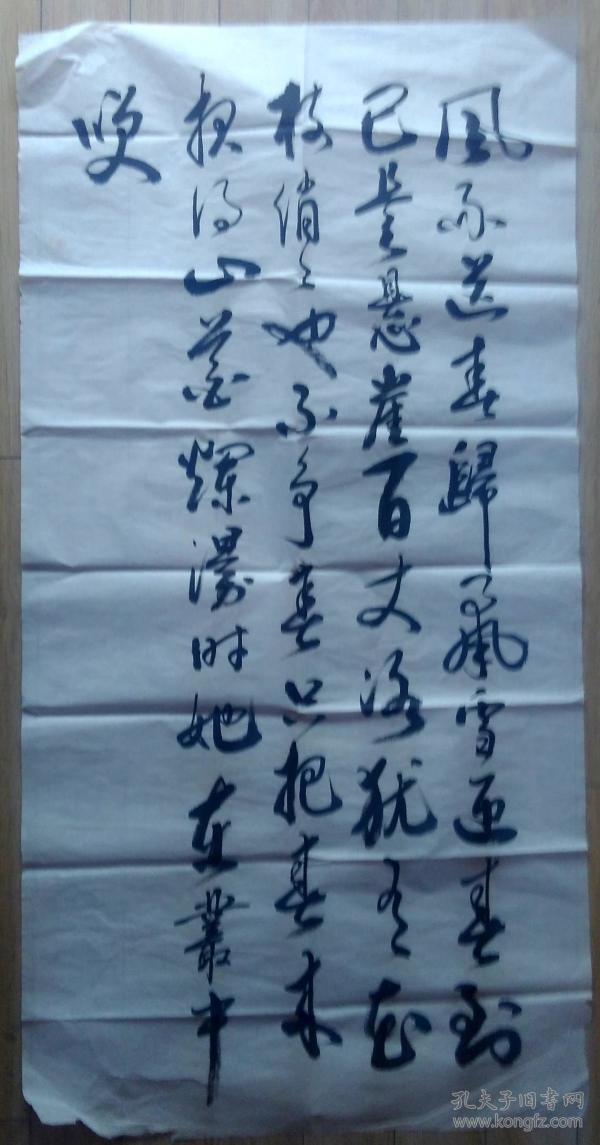 風雨送春歸飛雪迎春到
已是懸崖百丈冰犹有花
枝俏々也不争春只把春来
报得山花爛漫时她在叢中
咲
孔夫子旧书网
www.kongfz.com